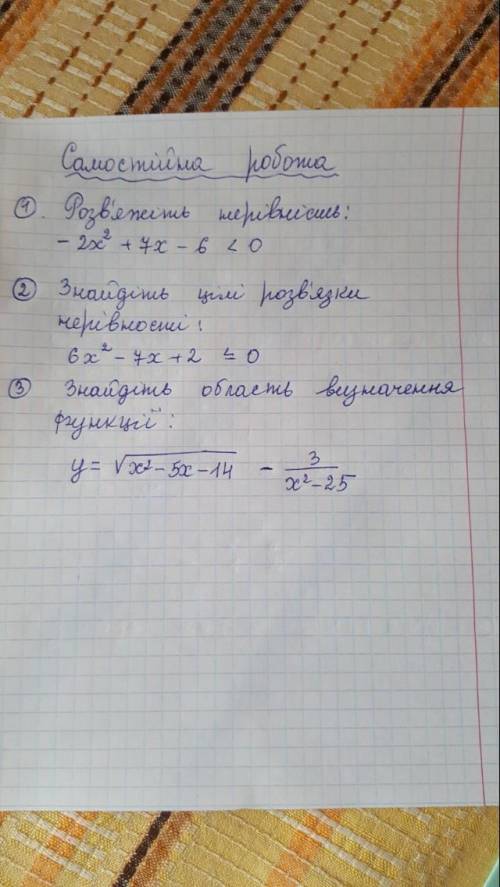 Самостійна робота
1. Розв'яжіть нерівність:
- 2x² + 7x - 6 < 0
2 Знайдіть цілі розв'язки
нерівності:
6x² - 7x + 2 ≤ 0
3 Знайдіть область визначення
функції:
y = √(x² - 5x - 14) - 3/(x² - 25)